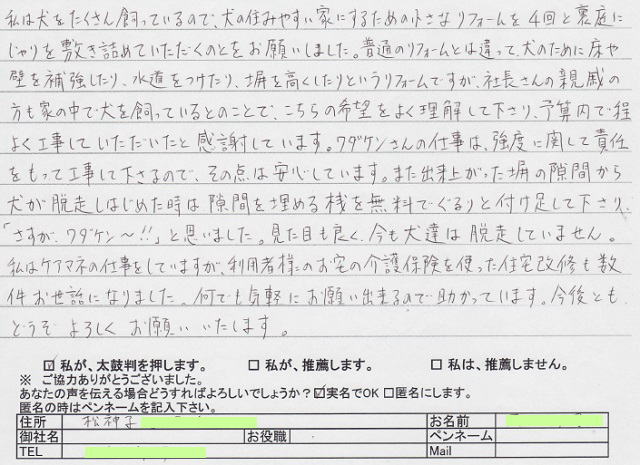 私は犬をたくさん飼っているので、犬の住みやすい家にするための小さなリフォームを4回と裏庭に
じゃりを敷き詰めていただくのとをお願いしました。普通のリフォームとは違って、犬のために床や
壁を補強したり、水道をつけたり、塀を高くしたりというリフォームですが、社長さんの親戚の
方も家の中で犬を飼っているとのことで、こちらの希望をよく理解して下さり、予算内で程
よく工事していただいたと感謝しています。ワダケンさんの仕事は、強度に関して責任
をもって工事して下さるので、その点は安心しています。また出来上がった塀の隙間から
犬が脱走しはじめた時は隙間を埋める桟を無料でぐるりと付け足して下さり、
「さすが、ワダケン〜!!」と思いました。見た目も良く、今も犬達は脱走していません。
私はケアマネの仕事をしていますが、利用者様のお宅の介護保険を使った住宅改修も数
件お世話になりました。何でも気軽にお願い出来るので助かっています。今後とも
どうぞよろしくお願いいたします。
☑ 私が、太鼓判を押します。 □ 私が、推薦します。 □ 私は、推薦しません。
※ ご協力ありがとうございました。
あなたの声を伝える場合どうすればよろしいでしょうか？☑実名でOK □匿名にします。
匿名の時はペンネームを記入下さい。
住所 松神子 お名前
御社名 お役職 ペンネーム
TEL Mail